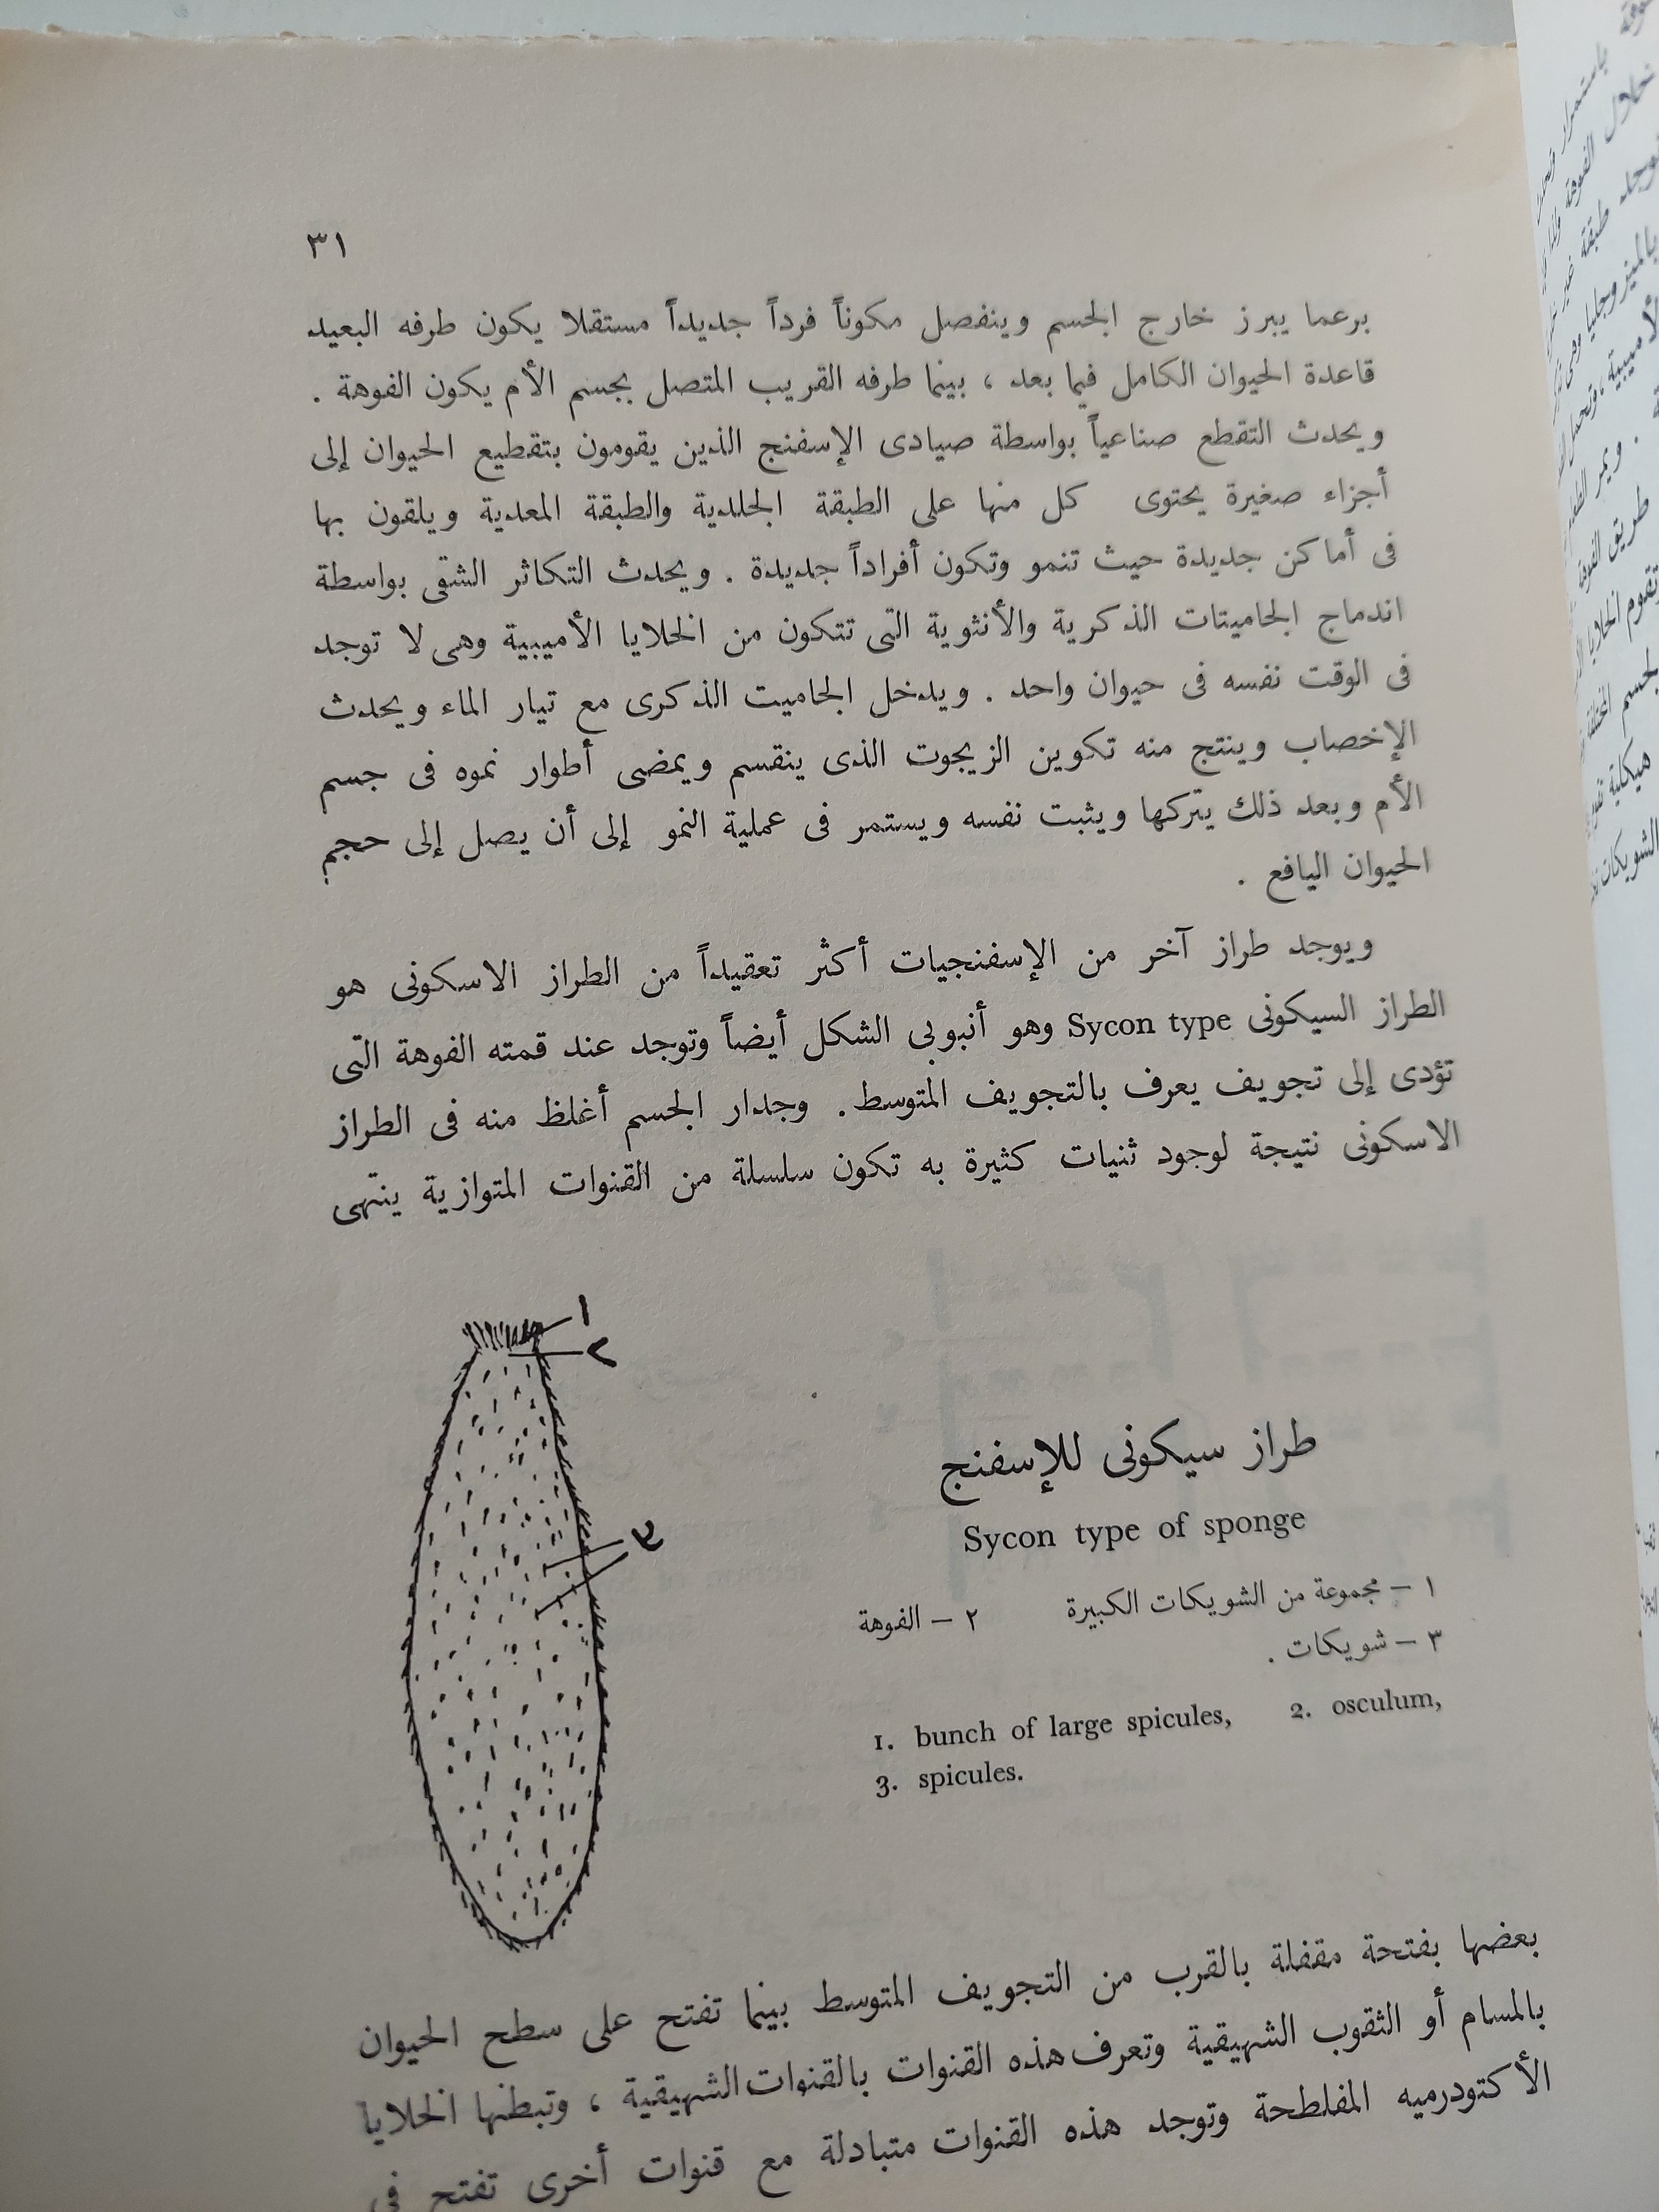 ٣١
برعما يبرز خارج الجسم وينفصل مكوناً فرداً جديداً مستقلا يكون طرفه البعيد
قاعدة الحيوان الكامل فيما بعد ، بينما طرفه القريب المتصل بجسم الأم يكون الفوهة .
ويحدث التقطع صناعياً بواسطة صيادى الإسفنج الذين يقومون بتقطيع الحيوان إلى
أجزاء صغيرة يحتوى كل منها على الطبقة الجلدية والطبقة المعدية ويلقون بها
فى أماكن جديدة حيث تنمو وتكون أفراداً جديدة . ويحدث التكاثر الشقى بواسطة
اندماج الجاميتات الذكرية والأنثوية التى تتكون من الخلايا الأميبية وهى لا توجد
فى الوقت نفسه فى حيوان واحد . ويدخل الجاميت الذكرى مع تيار الماء ويحدث
الإخصاب وينتج منه تكوين الزيجوت الذى ينقسم ويمضى أطوار نموه فى جسم
الأم وبعد ذلك يتركها ويثبت نفسه ويستمر فى عملية النمو إلى أن يصل إلى حجم
الحيوان اليافع .
ويوجد طراز آخر من الإسفنجيات أكثر تعقيداً من الطراز الاسكونى هو
الطراز السيكونى Sycon type وهو أنبوبى الشكل أيضاً وتوجد عند قمته الفوهة التى
تؤدى إلى تجويف يعرف بالتجويف المتوسط . وجدار الجسم أغلظ منه فى الطراز
الاسكونى نتيجة لوجود ثنيات كثيرة به تكون سلسلة من القنوات المتوازية ينتهى
١
٢
٣
طراز سيكونى للإسفنج
Sycon type of sponge
١ – مجموعة من الشويكات الكبيرة ٢ – الفوهة
٣ – شويكات .
1. bunch of large spicules, 2. osculum,
3. spicules.
بعضها بفتحة مقفلة بالقرب من التجويف المتوسط بينما تفتح على سطح الحيوان
بالمسام أو الثقوب الشهيقية وتعرف هذه القنوات بالقنوات الشهيقية ، وتبطنها الخلايا
الأكتودرميه المفلطحة وتوجد هذه القنوات متبادلة مع قنوات أخرى تفتح فى